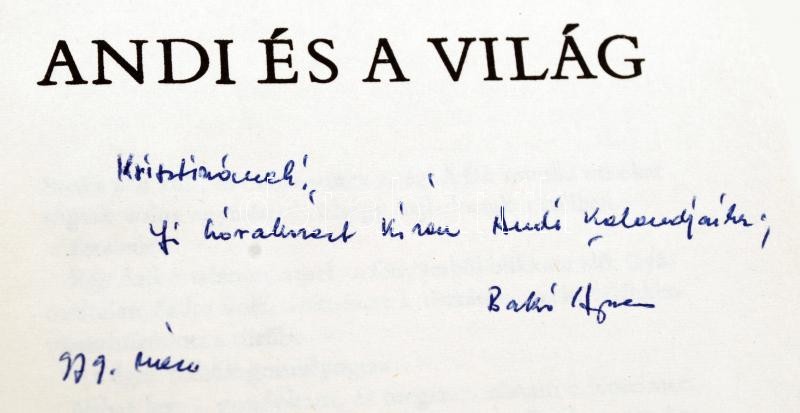 ANDI ÉS A VILÁG
Krisztinának,
Jó kívánva Andi kalandjaihoz,
Bakó Ágnes
979. márc